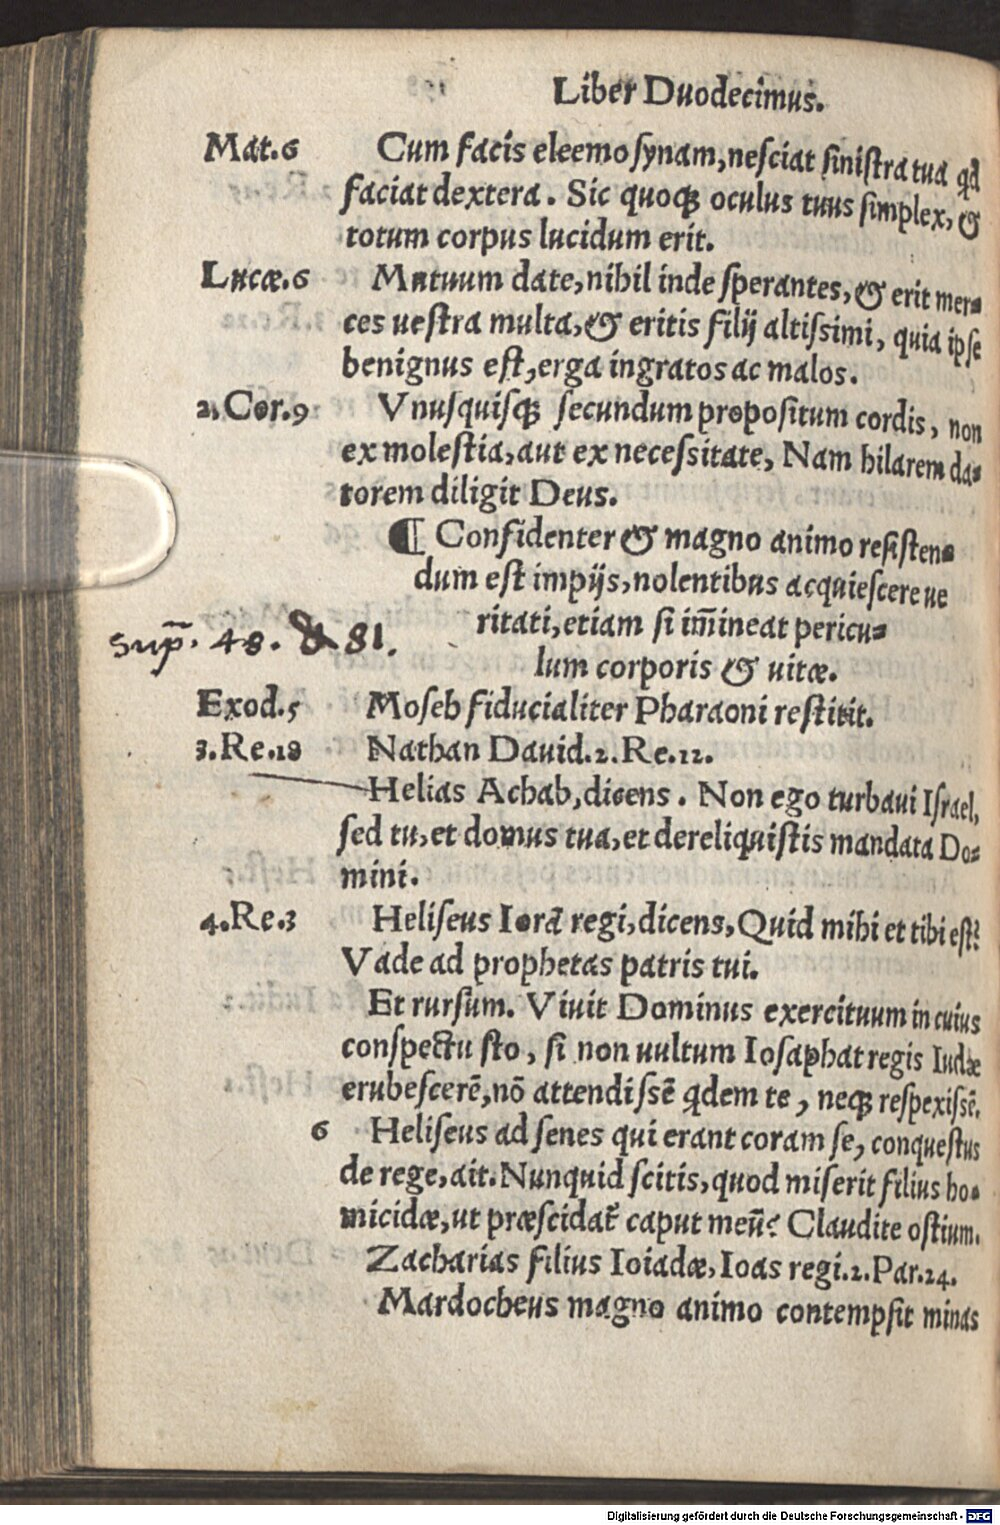 Liber Duodecimus.
Mat.6 Cum facis eleemosynam, nesciat sinistra tua qd
faciat dextera. Sic quoqꝫ oculus tuus simplex, &
totum corpus lucidum erit.
Lucæ.6 Mutuum date, nihil inde sperantes, & erit mer=
ces uestra multa, & eritis filij altissimi, quia ipse
benignus est, erga ingratos ac malos.
2.Cor.9 Vnusquisqꝫ secundum propositum cordis, non
ex molestia, aut ex necessitate, Nam hilarem da=
torem diligit Deus.
¶ Confidenter & magno animo resisten=
dum est impijs, nolentibus acquiescere ue
ritati, etiam si im̄ineat pericu=
lum corporis & uitæ.
Sup̄. 48. & 81.
Exod.5 Moseh fiducialiter Pharaoni restitit.
3.Re.18 Nathan Dauid.2.Re.12.
Helias Achab, dicens. Non ego turbaui Israel,
sed tu, et domus tua, et dereliquistis mandata Do=
mini.
4.Re.3 Heliseus Iorā regi, dicens, Quid mihi et tibi est?
Vade ad prophetas patris tui.
Et rursum. Viuit Dominus exercituum in cuius
conspectu sto, si non uultum Iosaphat regis Iudæ
erubescerē, nō attendissē qdem te, neqꝫ respexissē.
6 Heliseus ad senes qui erant coram se, conquestus
de rege, ait. Nunquid scitis, quod miserit filius ho=
micidæ, ut præscidat̄ caput meū? Claudite ostium.
Zacharias filius Ioiadæ, Ioas regi.2.Par.24.
Mardocheus magno animo contempsit minas
Digitalisierung gefördert durch die Deutsche Forschungsgemeinschaft - DFG